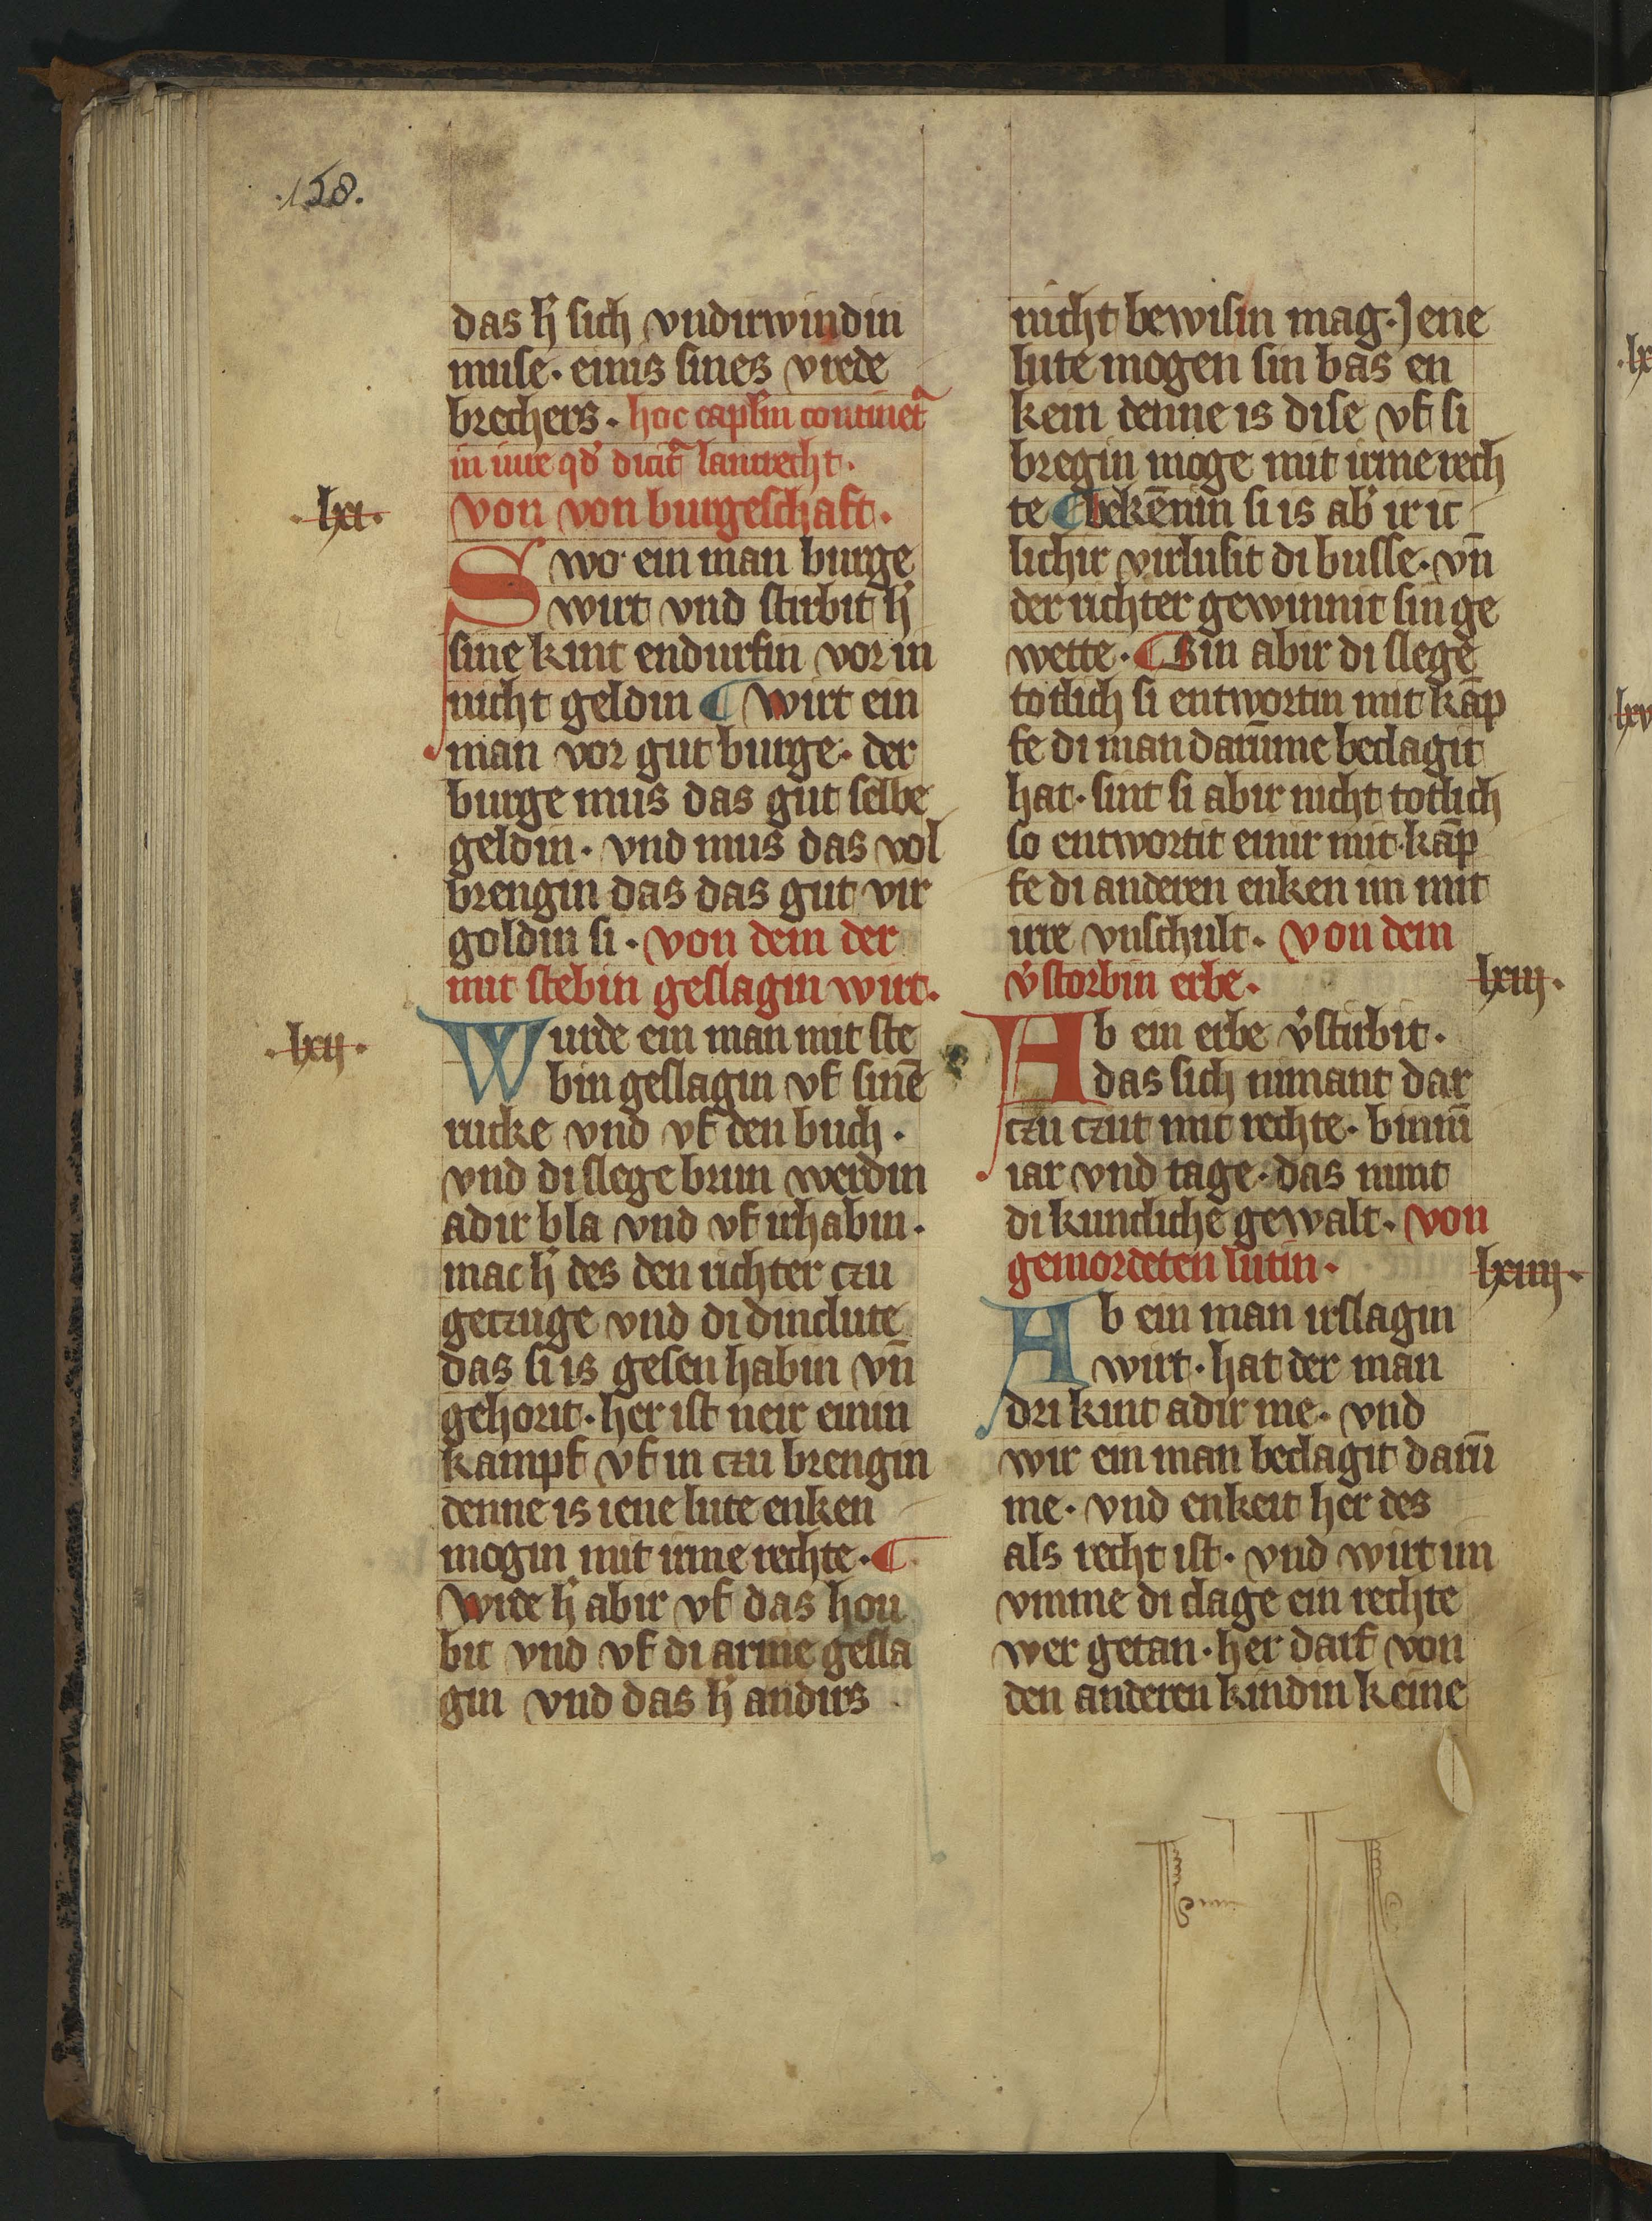 .158.
das h̓ sich vndirwindin
muse. einis sines vrede
brechers. hoc caplm continet᷑
in iure qd̓ dicit᷑ lantrecht.
.lxi. von von burgeschaft.
Swo ein man burge
wirt vnd stirbit h̓
sine kint endurfin vor in
nicht geldin ¶ wirt ein
man vor gut burge. der
burge mus das gut selbe
geldin. vnd mus das vol
brengin das das gut vir
goldin si. von dem der
mit stebin geslagin wirt.
.lxii. Wurde ein man mit ste
bin geslagin vf sinē
rucke vnd vf den buch.
vnd di slege brun werdin
adir bla vnd vf irhabin.
mac h̓ des den richter czu
geczuge vnd di dinclute
das si is gesen habin vn̄
gehorit. her ist neir einin
kampf vf in czu brengin
denne is iene lute enken
mogin mit irme rechte. ¶
Wirde h̓ abir vf das hou
bit vnd vf di arme gesla
gin vnd das h̓ andirs
nicht bewisin mag. Jene
lute mogen sin bas en
kein denne is dise vf si
bregin moge mit irme rech
te ¶ bekēnin si is ab̓ ir ic
lichir virlusit di busse. vn̄
der richter gewinnit sin ge
wette. ¶ Sin abir di slege
totlich si entwortin mit kāp
fe di man darūme beclagit
hat. sint si abir nicht totlich
so entwortit einir mit kāp
fe di anderen enken im mit
irre vnschult. von dem
v̓storbin erbe. lxiij.
Ab ein erbe v̓stirbit.
das sich nimant dar
czu czut mit rechte. binnī
iar vnd tage. das nimt
di kuncliche gewalt. von
gemordeten lutin. lxiiij.
Ab ein man irslagin
wirt. hat der man
dri kint adir me. vnd
wir ein man beclagit darū
me. vnd enkeit her des
als recht ist. vnd wirt im
vmme di clage ein rechte
wer getan. her darf von
den anderen kindin keine